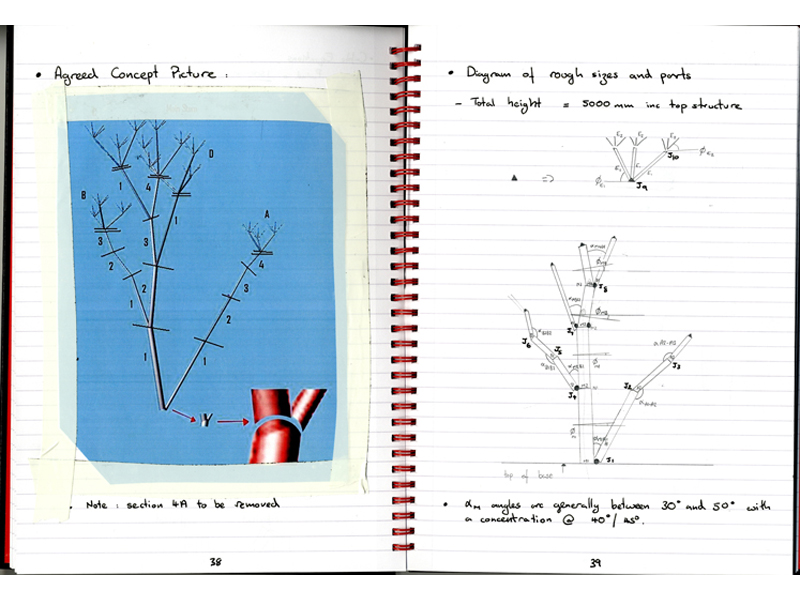 • Agreed Concept Picture :
D
B
1
4
1
A
3
3
2
4
2
3
1
2
1
1
• Note : section 4A to be removed
38
• Diagram of rough sizes and parts
– Total height = 5000 mm inc top structure
E2 E2 E2
J10
E1 E1 E1
▲ ⇒ J9
J8
J7
J6 J5
J3
J4 J2
J1
top of base
• αM angles are generally between 30° and 50° with
a concentration @ 40°/45°.
39